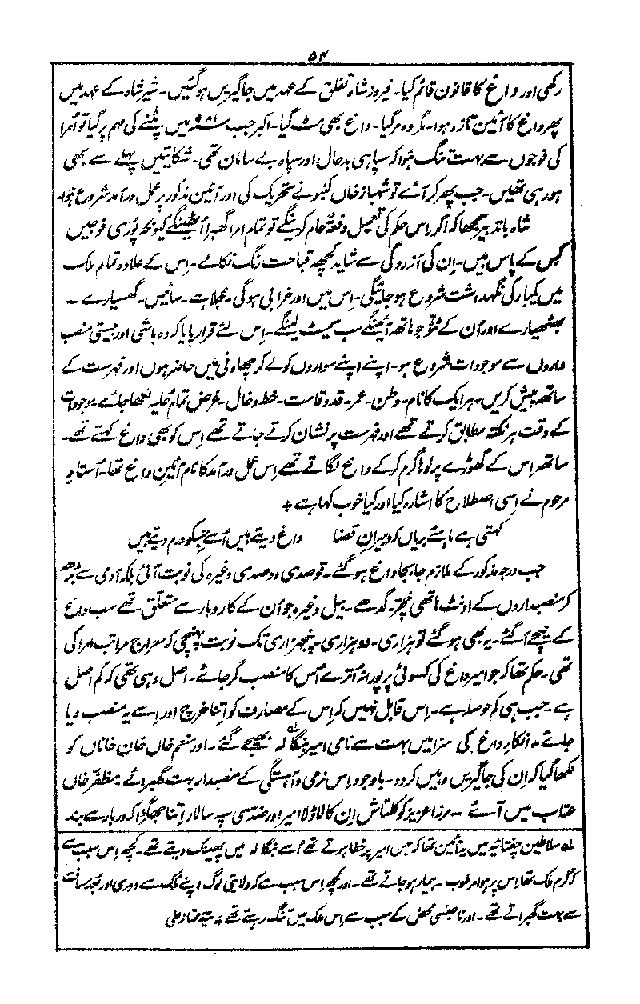 ۵۴
رکھی اور داغ کا قانون قائم کیا۔ فیروز شاہ تغلق کے عہد میں جاگیریں ہو گئیں۔ شیر شاہ کے عہد میں
پھر داغ کا آئین تازہ ہوا۔ مگر وہ مر گیا۔ داغ بھی مٹ گیا۔ اکبر جب میں پٹنے کی مہم پر گیا تو امرا
کی فوجوں سے بہت تنگ ہوا کہ سپاہی بدحال اور سپاہ بے سامان تھی۔ شکایتیں پہلے سے بھی
ہو رہی تھیں۔ جب پھر کر آئے تو شہباز خاں کنبو نے تحریک کی اور آئین مذکور پر عمل درآمد شروع ہوا۔
شاہ باتدبیر سمجھا کہ اگر اس حکم کی تعمیل دفعۃً عام کرینگے تو تمام امرا گھبرا اٹھینگے کیونکہ پوری فوجیں
کس کے پاس ہیں۔ ان کی آزردگی سے شاید کچھ قباحت رنگ نکالے۔ اس کے علاوہ تمام ملک
میں یکبارگی نگہداشت شروع ہو جائیگی۔ اس میں اور خرابی ہو گی۔ جلاہے۔ سائیس۔ گھسیارے۔
بھٹیارے اور ان کے ٹٹو جو ہاتھ آئینگے سب سمیٹ لینگے۔ اس لئے قرار پایا کہ دہ باشی اور بیستی منصب
داروں سے موجودات شروع ہو۔ اپنے اپنے سواروں کو لے کر چھاؤنی میں حاضر ہوں اور فہرست کے
ساتھ پیش کریں۔ ہر ایک کا نام۔ وطن۔ عمر۔ قد و قامت۔ خط و خال۔ غرض تمام حلیہ لکھا جائے۔ موجودات
کے وقت ہر نکتہ مطابق کرتے تھے اور فہرست پر نشان کرتے جاتے تھے اس کو بھی داغ کہتے تھے۔
ساتھ اس کے گھوڑے پر لوہا گرم کر کے داغ لگاتے تھے اس عمل درآمد کا نام آئین داغ تھا۔ استاد
مرحوم نے اسی اصطلاح کا اشارہ کیا اور کیا خوب کہا ہے +
کہتی ہے ماہی بریاں کہ دبیران قضا داغ دیتے ہیں اسے جسکو درم دیتے ہیں
جب درجہ مذکور کے ملازم جابجا داغ ہو گئے۔ تو صدی و دو صدی وغیرہ کی نوبت آئی بلکہ آدمی سے بڑھ
کر منصبداروں کے اونٹ ہاتھی خچر گدھے۔ بیل وغیرہ جو ان کے کاروبار سے متعلق تھے سب داغ
کے نیچے آ گئے۔ یہ بھی ہو گئے تو ہزاری۔ دو ہزاری پنجہزاری تک نوبت پہنچی کہ معراج مراتب امرا کی
تھی۔ حکم تھا کہ جو امیر داغ کی کسوٹی پر پورا نہ اترے اس کا منصب گر جائے۔ اصل وہی تھی کہ کم اصل
ہے۔ جب ہی کم حوصلہ ہے۔ اس قابل نہیں کہ اس کے مصارف کو اتنا خرچ اور اسے یہ منصب دیا
جائے۔ انکار داغ کی سزا میں بہت سے نامی امیر بنگالہ بھیجے گئے۔ اور منعم خاں خان خاناں کو
لکھا گیا کہ ان کی جاگیریں وہیں کر دو۔ باوجود اس نرمی و آہستگی کے منصبدار بہت گھبرائے مظفر خاں
عتاب میں آئے۔ مرزا عزیز کوکلتاش ان کا لاڈلا امیر اور ضدی سپہ سالار اتنا جھگڑا کہ دربار سے بند
لہ سلاطین چغتائیہ میں یہ آئین تھا کہ جس امیر پر خفا ہوتے تھے اسے بنگالہ میں پھینک دیتے تھے۔ کچھ اس سبب سے
کہ گرم ملک تھا اس پر ہوا مرطوب۔ بیمار ہو جاتے تھے۔ اور کچھ اس سبب سے کہ ولایتی لوگ اپنے ملک سے دوری اور
سے بہت گھبراتے تھے۔ اور ناجنسی محض کے سبب سے اس ملک میں تنگ رہتے تھے